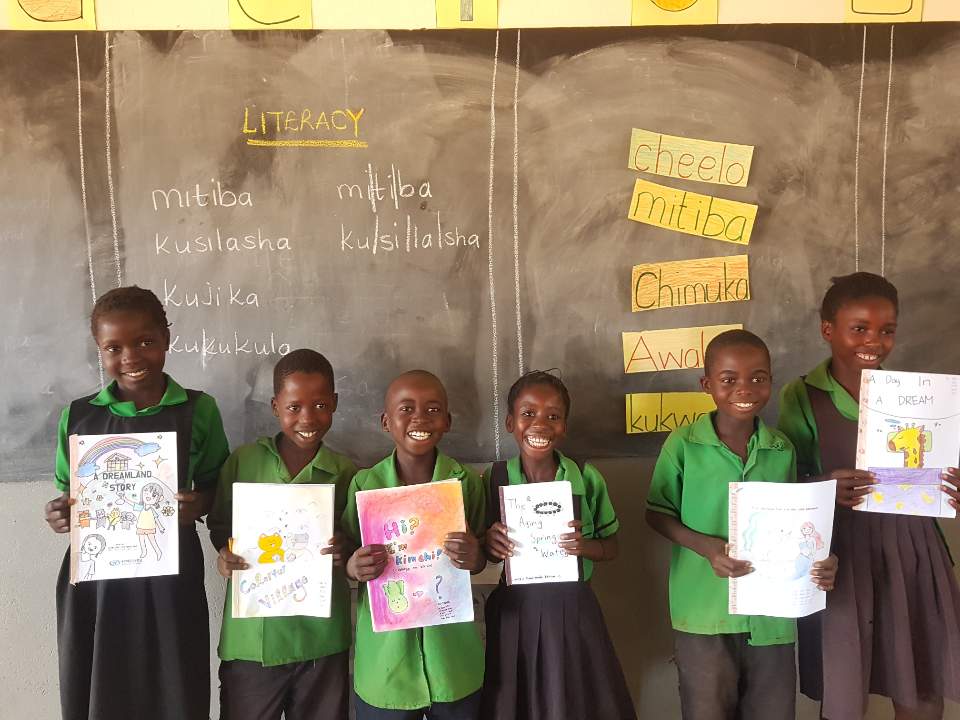 LITERACY
mitiba mi/ti/ba
kusilasha ku/si/la/sha
Kujika
kukukula
cheelo
mitiba
Chimuka
Awal
kukw
A DREAMLAND
STORY
Colorful
Village
Hi?
I'm
kimchi
?
The
Aging
Spring
Water
A Day In
A DREAM